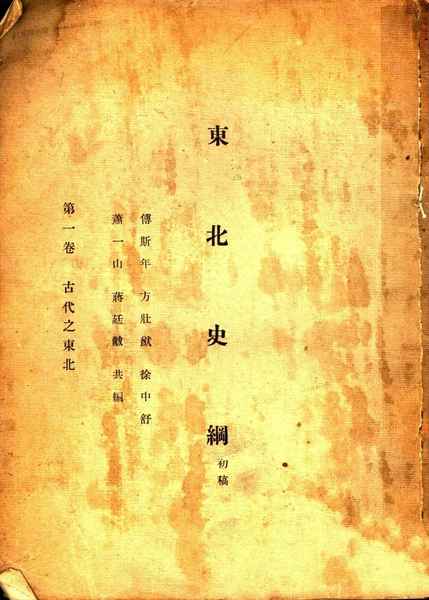 東北史綱 初稿
傅斯年 方壯猷 徐中舒
蕭一山 蔣廷黻 共編
第一卷 古代之東北